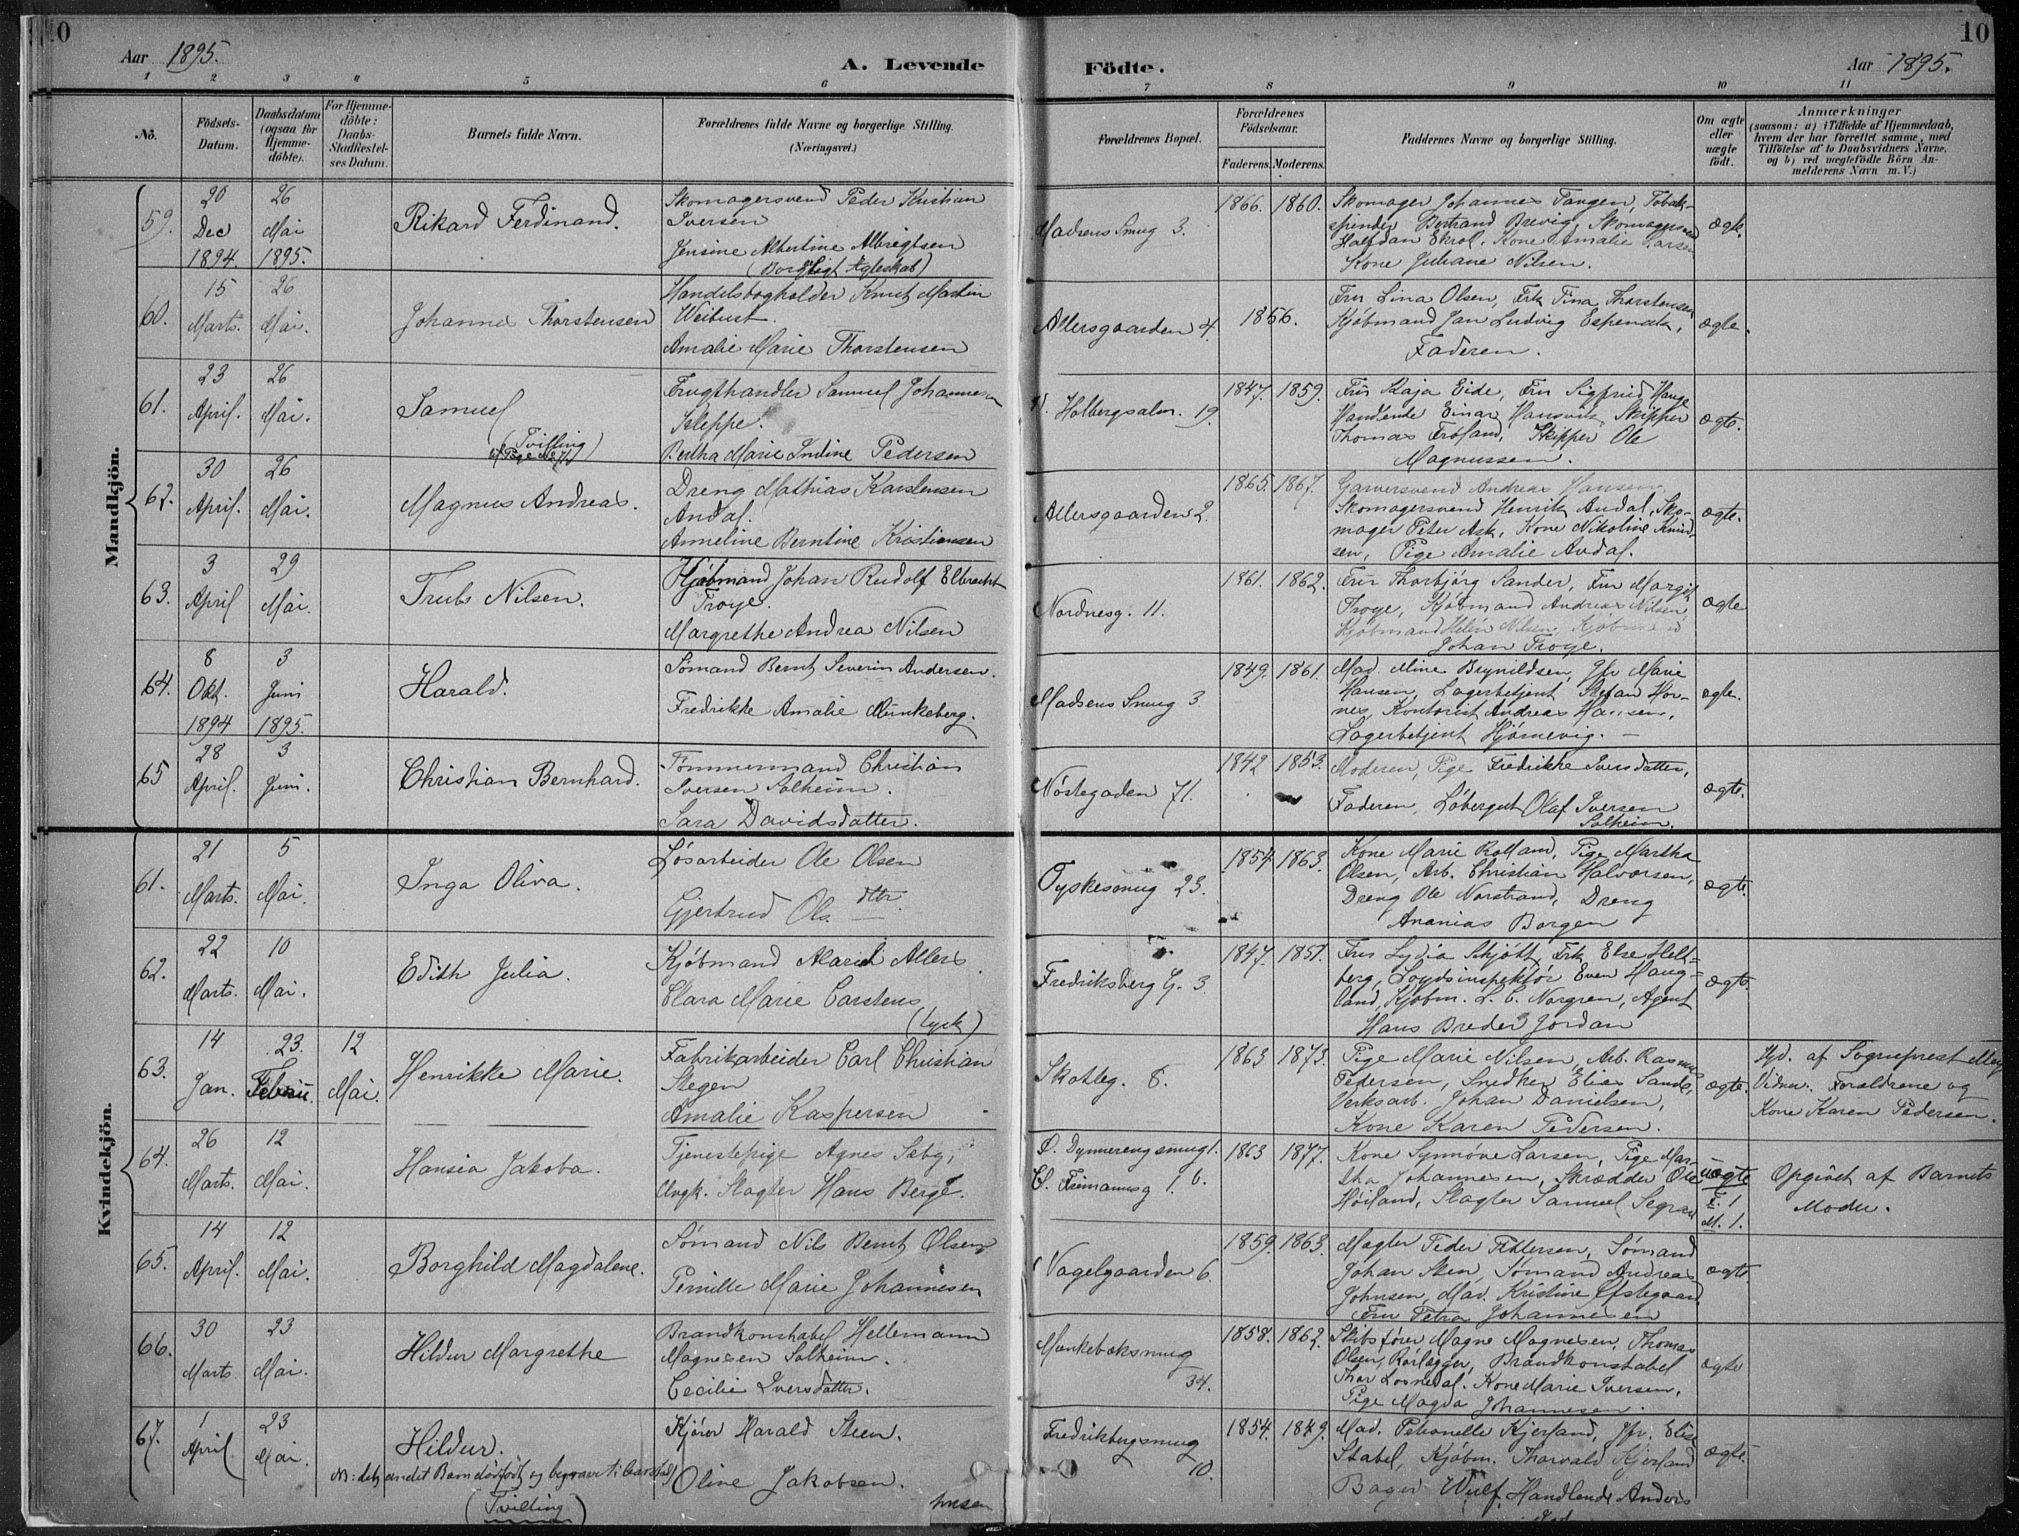 10
Aar 1895.
A. Levende
Födte.
Aar 1895.
10
1 2 3 4 5 6 7 8 9 10 11
No.
Födsels-
Datum.
Daabsdatum
(ogsaa for
Hjemme-
döbte).
For Hjemme-
döbte:
Daabs-
Stadfæstel-
ses Datum.
Barnets fulde Navn.
Forældrenes fulde Navne og borgerlige Stilling.
(Næringsvei.)
Forældrenes Bopæl.
Forældrenes
Födselsaar.
Faderens. Moderens.
Faddernes Navne og borgerlige Stilling.
Om ægte
eller
uægte
födt.
Anmærkninger
(saasom: a) i Tilfælde af Hjemmedaab,
hvem der har forrettet samme, med
Tilföielse af to Daabsvidners Navne,
og b) ved uægtefödte Börn An-
melderens Navn m. V.)
Mandkjön.
59.
20
Dec
1894.
26
Mai
1895.
Rikard Ferdinand.
Skomagersvend Peder Kristian
Iversen
Jensine Albertine Albrigtsen
(Borgligt Ægteskab)
Madsens Smug 3.
1866. 1860.
Skomager Johannes Tangen, Tobak-
spinder Bertrand Brevig, Skomagersvend
Halfdan Ekrol, Kone Amalie Larsen
Kone Juliane Nilsen.
ægte.
60.
15
Marts.
26
Mai.
Johannes Thorstensen
Handelsbogholder Knut Martin
Weibust.
Amalie Marie Thorstensen
Allersgaarden 4.
1856.
Fru Lina Olsen, Frk Tina Thorstensen
Kjøbmand Jan Ludvig Espenak,
Faderen.
ægte.
61.
23
April.
26
Mai.
Samuel
(Tvilling
Frugthandler Samuel Johannesen
Sleppe.
Bertha Marie Indine Pedersen
Holbergsalm. 19.
1847. 1859.
Fru Kaja Eide, Fru Sigfrid Hauge
Handlende Einar Hansvik, Skipper
Thomas Frøland, Skipper Ole
Magnussen.
ægte.
62.
30
April.
26
Mai.
Magnus Andreas.
Dreng Mathias Karstensen
Andal.
Anneline Berntine Kristiansen
Allersgaarden 2.
1865. 1867.
Garversvend Andreas Hansen,
Skomagersvend Henrik Andal, Sko-
mager Peter Ask, Kone Nikoline Knud-
sen, Pige Amalie Andal.
ægte.
63.
3
April
29
Mai.
Truls Nilsen.
Kjøbmand Johan Rudolf Elbrecht
Troye.
Margrethe Andrea Nilsen
Nordnesg. 11.
1861. 1862.
Fru Thorbjørg Sander, Fru Margit
Troye, Kjøbmand Andreas Nilsen
Kjøbmand Nilsen Kjøbmand
Johan Troye.
ægte
64.
8
Okt.
1894
3
Juni
1895.
Harald.
Sømand Bernt Severin Andersen.
Fredrikke Amalie Munkeberg.
Madsens Smug 3.
1849. 1861.
Mad. Mine Brynildsen, Jfr Marie
Hansen, Lagerbetjent Stefan Hor-
nes, Kontorist Andreas Hansen,
Lagerbetjent Hjørnevig.
ægte.
65
28
April.
3
Juni.
Christian Bernhard.
Tømmermand Christian
Iversen Solheim.
Sara Davidsdatter.
Nøstegaden 71.
1842 1853.
Moderen, Pige Fredrikke Iversdatter,
Faderen, Løbergut Olaf Iversen
Solheim.
ægte.
Kvindekjön.
61.
21
Marts.
5
Mai.
Inga Oliva.
Løsarbeider Ole Olsen
Gjertrud Ols. dtr.
Tyskesmug 23.
1854. 1863.
Kone Marie Rolland, Pige Martha
Olsen, Arb. Christian Halvorsen,
Dreng Ole Norstrand, Dreng
Ananias Borgen
ægte.
62.
22
Marts.
10
Mai.
Edith Julia.
Kjøbmand Alarich Allers
Clara Marie Carstens
(Lyck)
Fredriksberg G. 3.
1847. 1851.
Frus Lydia Schjøtt, Frk Else Helt-
berg, Loydsinspektør Even Haug-
land, Kjøbm. L. C. Norgren, Agent
Hans Breder Jordan
ægte.
63.
14
Jan.
23.
Februar.
12
Mai.
Henrikke Marie.
Fabrikarbeider Carl Christian
Stegen
Amalie Kaspersen
Skotteg. 8.
1863 1873.
Pige Marie Nilsen, Arb. Rasmus
Pedersen, Snedker Elias Sande,
Verksarb. Johan Danielsen,
Kone Karen Pedersen.
ægte.
Hjd. af Sogneprest
Vidner: Forældrene og
Kone Karen Pedersen.
64.
26
Marts.
12
Mai.
Hansia Jakoba.
Tjenestepige Agnes Sæby,
Ungk. Slagter Hans Berge.
Ø. Dynnerengsmug 1.
C. Frimannsg 1. b.
1863 1877.
Kone Synnøve Larsen, Pige Mar-
tha Johannesen, Skrædder Ole
Høiland, Slagter Samuel
uægte
F. 1
M. 1.
Opgivet af Barnets
Moder.
65.
14
April.
12
Mai.
Borghild Magdalene.
Sømand Nils Bernt Olsen
Pernille Marie Johannesen
Vagelgaarden 6.
1859. 1863.
Slagter Peder Pettersen, Sømand
Johan Steen, Sømand Andreas
Johnsen, Mad. Kristine Øfstegaard,
Fru Petra Johannesen
ægte
66.
30
Marts.
23
Mai.
Hildur Margrethe
Brandkonstabel Hellemann
Magnesen Solheim.
Cecilie Iversdatter.
Munkebæksmug
34.
1858. 1862.
Skibsfører Magne Magnesen, Thomas
Olsen, Rørlægger, Brandkonstabel
Thor Losnedal. Kone Marie Iversen,
Pige Magda Johannesen.
ægte
67.
1
April
23
Mai.
Hildur.
NB: det andet Barn dødfødt og begravet
(Tvilling)
Kjører Harald Steen.
Oline Jakobsen.
Fredriksbergsmug
10.
1854. 1849.
Mad. Petronelle Kjerland, Jfr. Elise
Stabel, Kjøbm. Thorvald Kjerland
Bager Wulf, Handlende Anders
ægte.